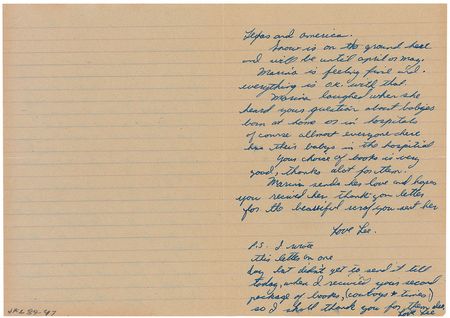 Texas and america.
Snow is on the ground here
and will be until april or may.
Marina is feeling fine and
everything is O.K. with that.
Marina laughed when she
heard your question about babies
born at home or in hospitals
of course allmost everyone here
has their babys in the hospitial
Your choice of books is very
good, thanks alot for them.
Marina sends her love and hopes
you recived her thank-you letter
for the beautiful scarf you sent her
Love Lee.
P.S. I wrote
this letter on one
day but didn't get to send it till
today, when I recived your second
package of books, (cowboys + times)
so I shold thank you for them also,
Love Lee